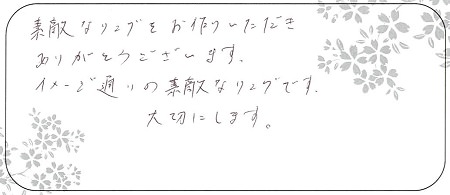 素敵なリングをお作りいただき
ありがとうございます。
イメージ通りの素敵なリングです。
大切にします。